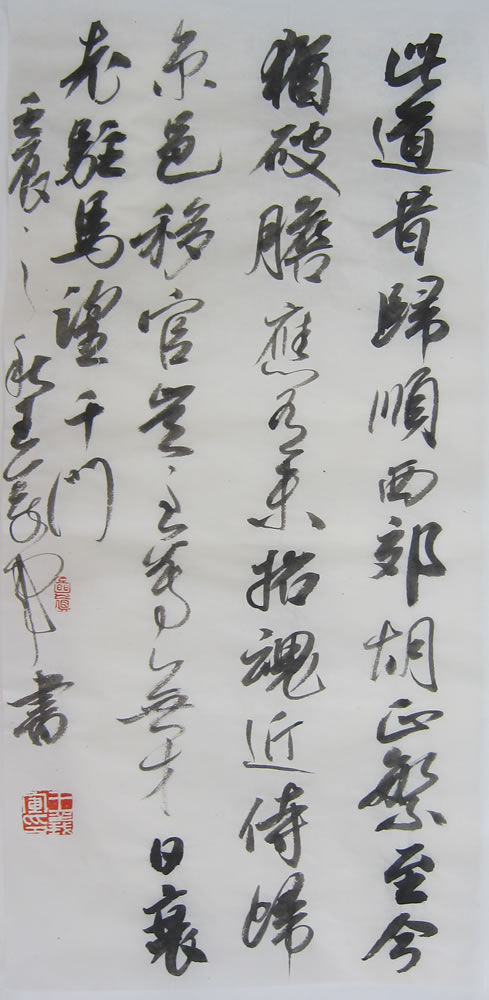 此道昔歸順西郊胡正繁至今
猶破膽應有未招魂近侍歸
京邑移官豈至尊無才日衰
老駐馬望千門
壬辰之秋王義軍書
王義軍印